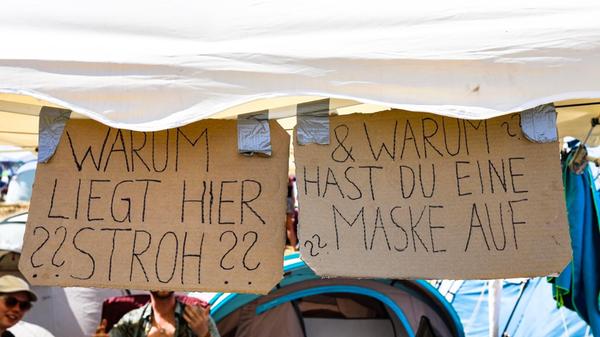 WARUM
LIEGT HIER
?? STROH ??
& WARUM ??
HAST DU EINE
?? MASKE AUF